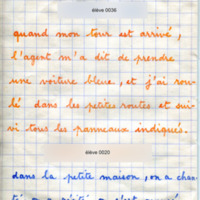 élève 0036
quand mon tour est arrivé,
l'agent m'a dit de prendre
une voiture bleue, et j'ai rou-
lé dans les petites routes et sui-
vi tous les panneaux indiqués.
élève 0020
dans la petite maison, on a chan-